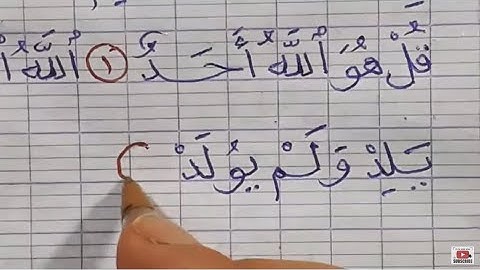 قُلْ هُوَ ٱللَّهُ أَحَدٌ ١ ٱللَّهُ ٱ
يَلِدْ وَلَمْ يُولَدْ
SUBSCRIBE